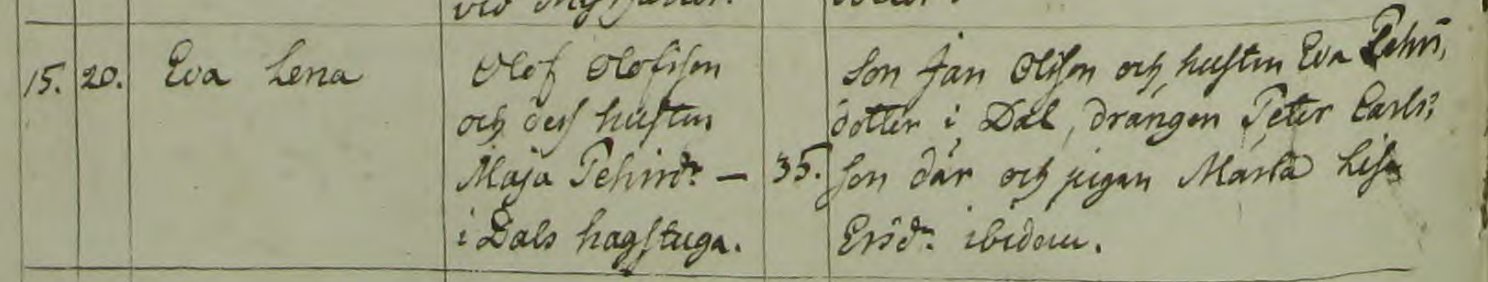 15. 20. Eva Lena Olof Olofsson Son Jan Olsson och hustrun Eva Pehrs,
och dess hustru dotter i Dal, drängen Peter Carls,
Maja Pehrsdr. — 35. son där och pigan Marta Lisa
i Dals hagstuga. Ersdr. ibidem.